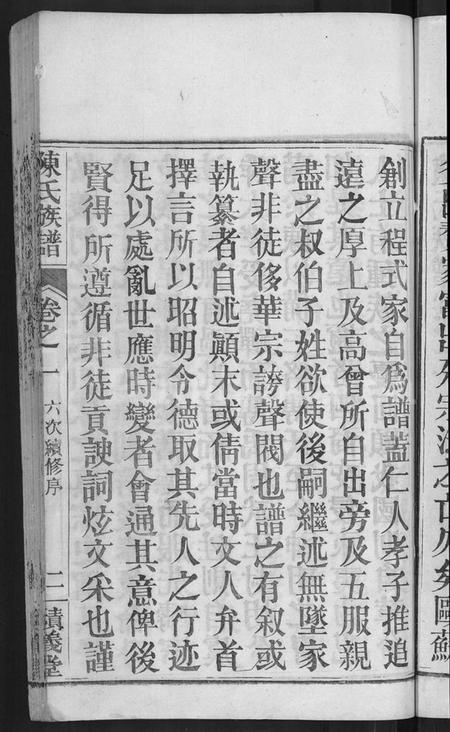 創立程式家自爲譜葢仁人孝子推追
遠之厚上及高曾所自出旁及五服親
盡之叔伯子姓欲使後嗣繼述無墜家
聲非徒侈華宗誇聲閥也譜之有叙或
執纂者自述顚末或倩當時文人弁首
擇言所以昭明令德取其先人之行迹
足以處亂世應時變者會通其意俾後
賢得所遵循非徒貢諛詞炫文采也謹
陳氏族譜
卷之一
六次續修序
二
義堂